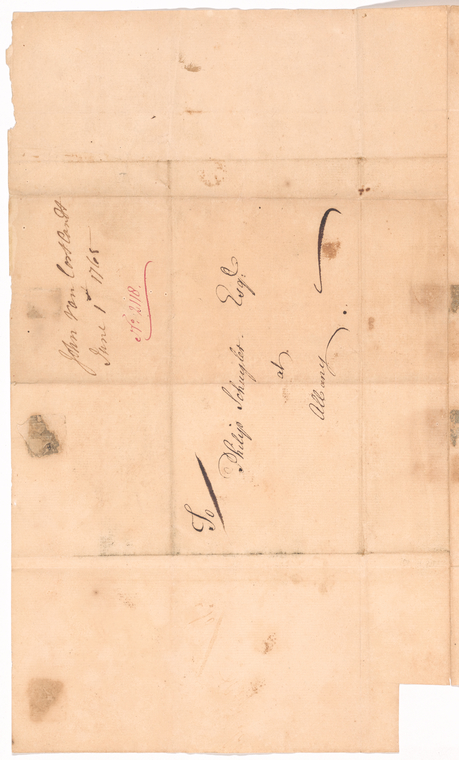 John Van Cortlandt
June 1st 1765
No. 2118
To
Philip Schuyler. Esqr.
at
Albany.